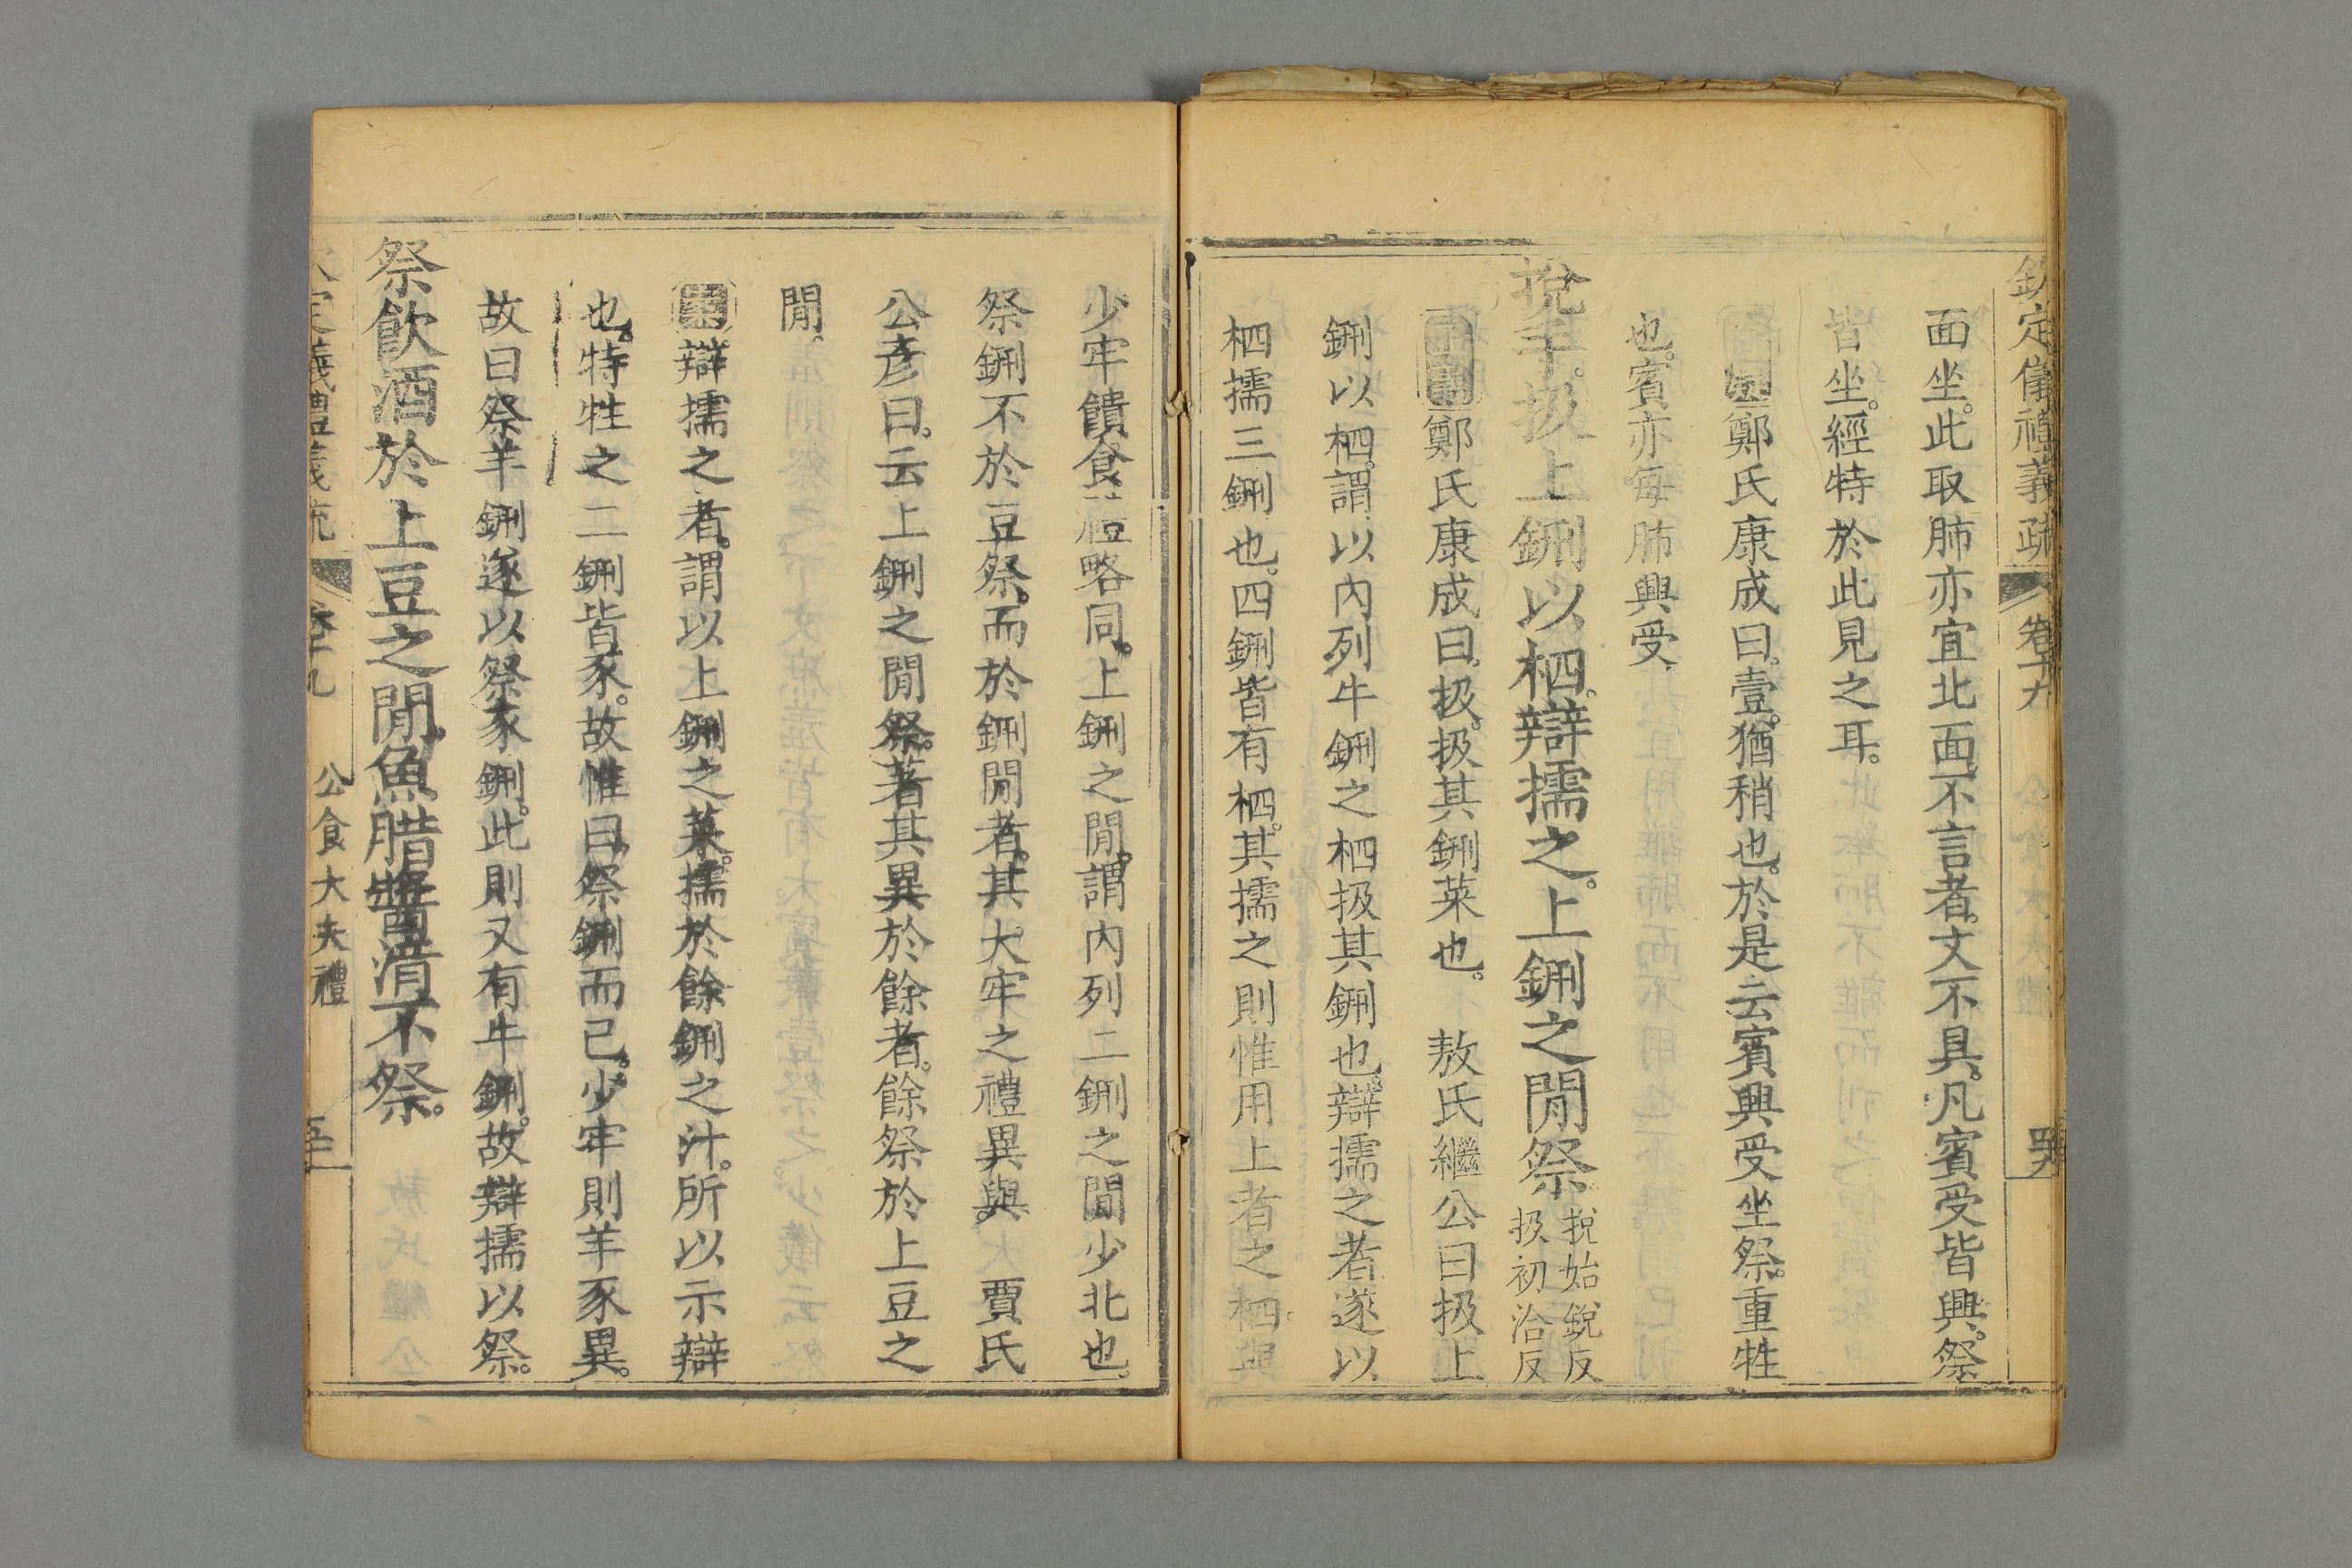 欽定儀禮義疏 卷十九
面坐。此取肺亦宜北面。不言者。文不具。凡賓受皆興。祭
皆坐。經特於此見之耳。
鄭氏康成曰。壹。猶稍也。於是云賓興受坐祭。重牲
也。賓亦每肺興受。
捝手。扱上鉶以柶。辯擩之。上鉶之閒祭。捝始銳反
扱初洽反
正義鄭氏康成曰。扱。扱其鉶菜也。 敖氏繼公曰扱上
鉶以柶。謂以內列牛鉶之柶扱其鉶也。辯擩之者。遂以
柶擩三鉶也。四鉶皆有柶。其擩之則惟用上者之柶與
少牢饋食禮略同。上鉶之閒。謂內列二鉶之閒少北也。
祭鉶不於豆祭。而於鉶閒者。其大牢之禮異與。 賈氏
公彥曰。云上鉶之閒祭。著其異於餘者。餘祭於上豆之
閒。
案辯擩之者。謂以上鉶之菜。擩於餘鉶之汁。所以示辯
也。特牲之二鉶皆豕。故惟曰祭鉶而已。少牢則羊豕異。
故曰祭羊鉶遂以祭豕鉶。此則又有牛鉶。故辯擩以祭。
祭飲酒於上豆之閒。魚腊醬湆不祭。
公食大夫禮